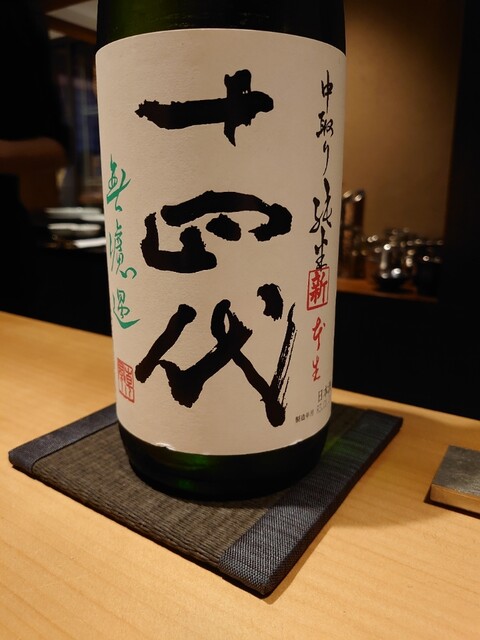 中取り純米
新
本生
十四代
無濾過
製造年月
日本酒